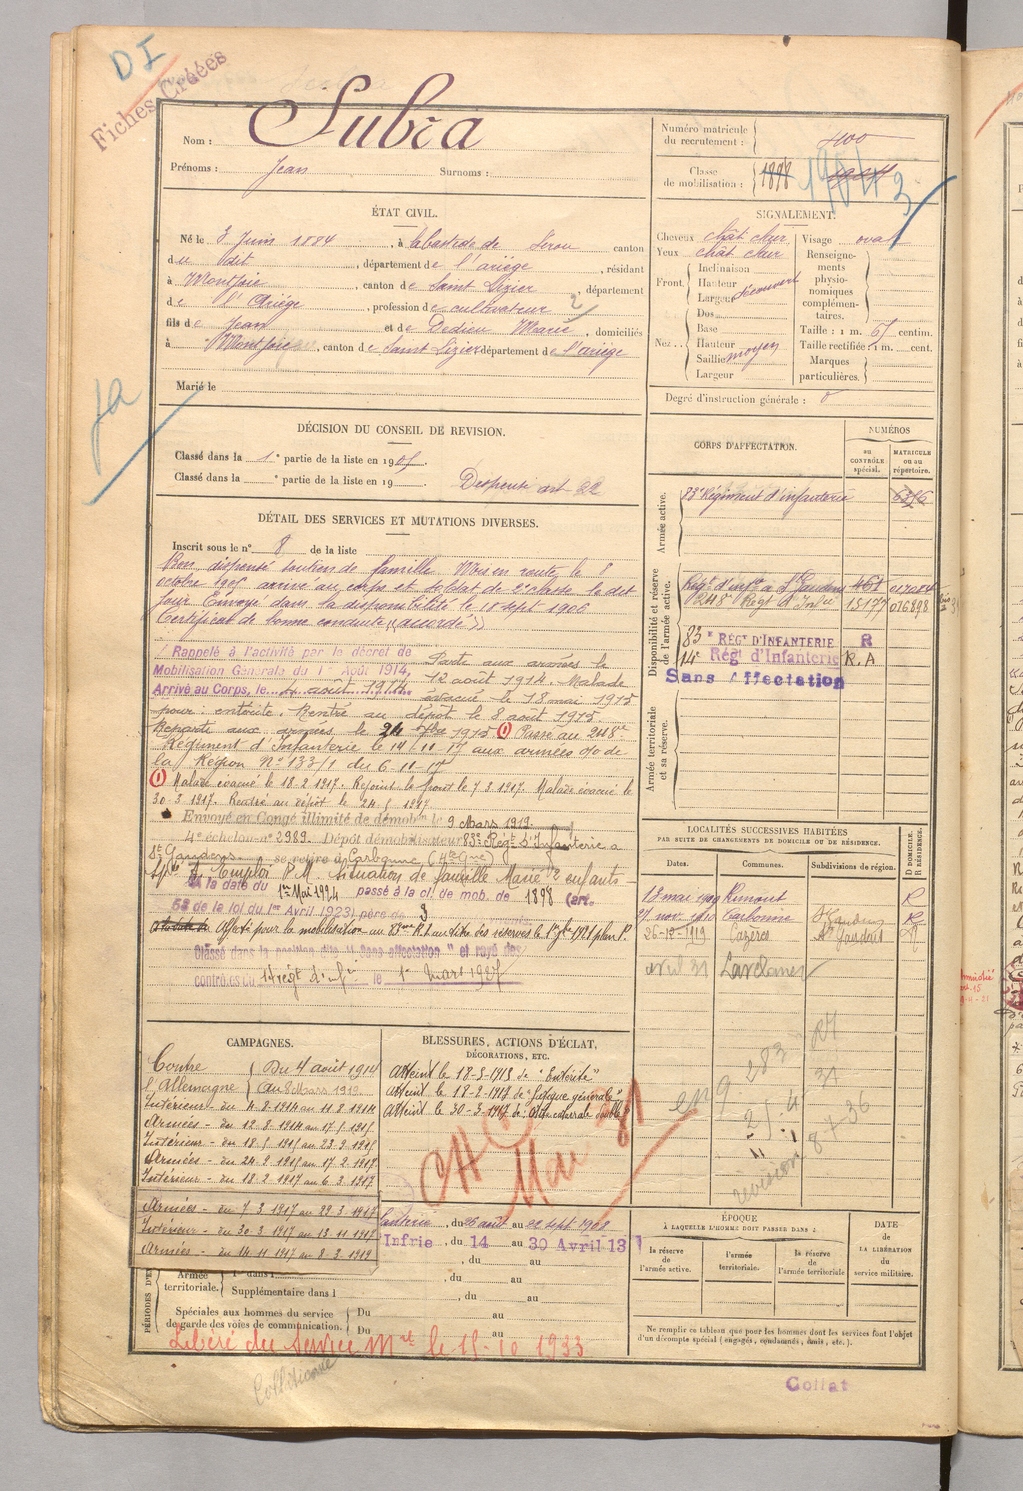 DI
Fiches Créées
Nom : Subra
Prénoms : Jean Surnoms :
Numéro matricule du recrutement : 400
Classe de mobilisation : 1898
ÉTAT CIVIL.
Né le 3 Juin 1884, à Labastide de Serou canton
du dit, département de l'ariège, résidant
à Montjoie, canton de Saint Lizier, département
de l'Ariège, profession de cultivateur
fils de Jean et de Dedieu Marie, domiciliés
à Montjoie, canton de Saint Lizier département de l'ariège
Marié le
SIGNALEMENT.
Cheveux chât clair Visage oval
Yeux chât clair
Front. Inclinaison
Hauteur
Largeur découvert
Nez . . Dos
Base
Hauteur
Saillie moyen
Largeur
Renseignements physionomiques complémentaires.
Taille : 1 m. 65 centim.
Taille rectifiée : 1 m. cent.
Marques particulières.
Degré d'instruction générale :
DÉCISION DU CONSEIL DE REVISION.
Classé dans la 1e partie de la liste en 1905.
Classé dans la e partie de la liste en 19 Dispensé art 22
DÉTAIL DES SERVICES ET MUTATIONS DIVERSES.
Inscrit sous le n° 8 de la liste
Bon, dispensé soutien de famille. Mis en route le 8
octobre 1905 arrivé au corps et soldat de 2e classe le dit
jour. Envoyé dans la disponibilité le 18 sept 1906
Certificat de bonne conduite "accordé"
Rappelé à l'activité par le décret de
Mobilisation Générale du 1er Août 1914,
Arrivé au Corps, le 4 août 1914. Parti aux armées le
12 août 1914. Malade
évacué le 18 mai 1915
pour : entérite. Rentré au dépôt le 8 août 1915
Reparti aux armées le 24 7bre 1915 (1) Passé au 248e
Régiment d'Infanterie le 14/11-17 aux armées o/o de
la / Région N° 133/1 du 6-11-17
(1) Malade évacué le 18-2 1917. Rejoint le front le 7 3 1917. Malade évacué le
30-3 1917. Rentré au dépôt le 24-5 1917.
Envoyé en Congé illimité de démobon le 9 Mars 1919.
4e échelon n° 2989. Dépôt démobilisateur 83e Régt d'Infanterie à
St Gaudens se retire à Carbonne (Hte Gne)
Situation de famille Marié 2 enfants
A la date du 1er Mai 1924 passé à la cl. de mob. de 1898 (art.
58 de la loi du 1er Avril 1923) père de 3
Affecté pour la mobilisation au 83me R.I.
Classé dans la position dite "Sans affectation" et rayé des
contrôles du 14 régt d'Infie le 1er mars 1927
CORPS D'AFFECTATION.
NUMÉROS
au CONTRÔLE spécial.
MATRICULE ou au répertoire.
Armée active.
83e Régiment d'infanterie 6376
Disponibilité et réserve de l'armée active.
Régt d'infie à St Gaudens 461 017084
248e Régt d'Infie 15177 016898
83e RÉGt D'INFANTERIE R
14e Régt d'Infanterie R.A
Sans Affectation
Armée territoriale et sa réserve.
LOCALITÉS SUCCESSIVES HABITÉES
PAR SUITE DE CHANGEMENTS DE DOMICILE OU DE RÉSIDENCE.
Dates. Communes. Subdivisions de région. D DOMICILE. R RÉSIDENCE.
13 mai 1909 Rimont R
21 nov. 1910 Carbonne St Gaudens R
26-12-1919 Cazères St Gaudens R
avril 31 Lavelanet
CAMPAGNES.
Contre l'Allemagne Du 4 août 1914
au 8 Mars 1919.
Intérieur - du 4-8-1914 au 11 8 1914
Armées - du 12 8-1914 au 17-5-1915
Intérieur - du 18-5-1915 au 23-9-1915
Armées - du 24 9-1915 au 17-2-1917
Intérieur - du 18-2 1917 au 6-3 1917
Armées - du 7 3 1917 au 29 3 1917
Intérieur - du 30 3 1917 au 13 11 1917
Armées - du 14 11 1917 au 8-3-1919
BLESSURES, ACTIONS D'ÉCLAT,
DÉCORATIONS, ETC.
Atteint le 18-5-1915 de "Entérite"
Atteint le 18-2-1917 de "fatigue générale"
Atteint le 30-3-1917 de
Mai 31
283
25-4-31
revision 8-7-36
PÉRIODES D'E
fanterie, du 26 août au 22 sept 1908
Infrie, du 14 au 30 Avril 13
, du au
, du au
, du au
Armée territoriale. 1re dans l
Supplémentaire dans l
Spéciales aux hommes du service de garde des voies de communication. Du au
Du au
Libéré du service Mre le 15-10 1933
ÉPOQUE
À LAQUELLE L'HOMME DOIT PASSER DANS :
la réserve de l'armée active.
l'armée territoriale.
la réserve de l'armée territoriale
DATE de LA LIBÉRATION du service militaire.
Ne remplir ce tableau que pour les hommes dont les services font l'objet
d'un décompte spécial (engagés, condamnés, omis, etc.).
Collat